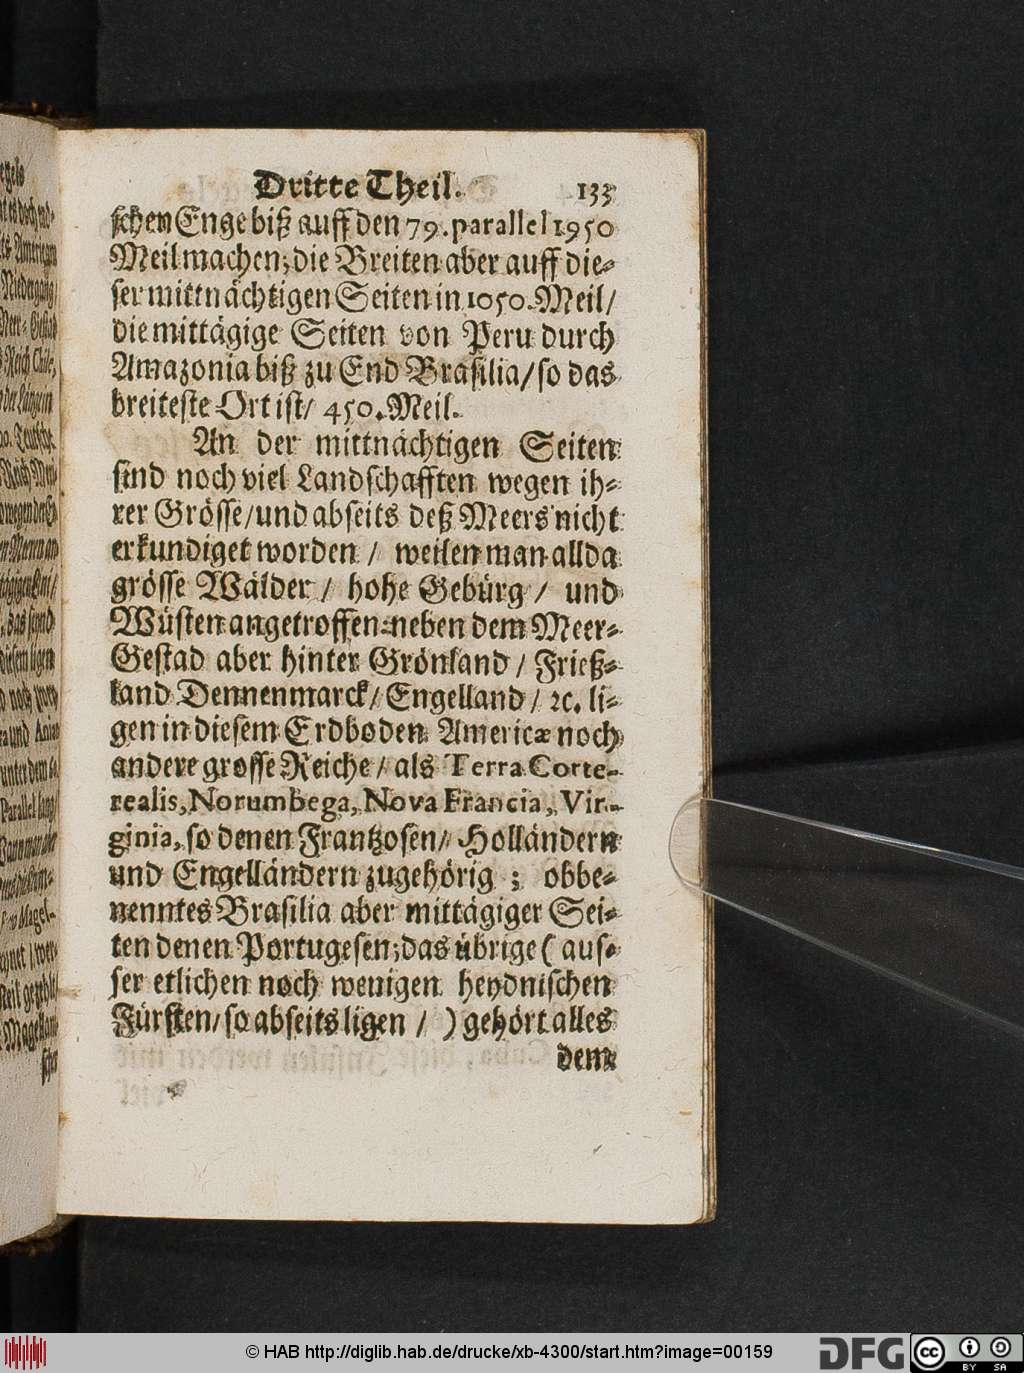 Dritte Theil. 133
schen Enge biß auff den 79. parallel 1950
Meil machen; die Breiten aber auff die⸗
ser mittnächtigen Seiten in 1050. Meil /
die mittägige Seiten von Peru durch
Amazonia biß zu End Brasilia / so das
breiteste Ort ist / 450. Meil.
An der mittnächtigen Seiten
sind noch viel Landschafften wegen ih⸗
rer Grösse / und abseits deß Meers nicht
erkundiget worden / weilen man allda
grösse Wälder / hohe Gebürg / und
Wüsten angetroffen: neben dem Meer⸗
Gestad aber hinter Grönland / Frieß⸗
land Dennenmarck / Engelland / ꝛc. li⸗
gen in diesem Erdboden Americæ noch
andere grosse Reiche / als Terra Corte-
realis, Norumbega, Nova Francia, Vir-
ginia, so denen Frantzosen / Holländern
und Engelländern zugehörig ; obbe⸗
nenntes Brasilia aber mittägiger Sei⸗
ten denen Portugesen; das übrige ( aus⸗
ser etlichen noch wenigen heydnischen
Fürsten / so abseits ligen / ) gehört alles
dem
© HAB http://diglib.hab.de/drucke/xb-4300/start.htm?image=00159
DFG
cc BY SA